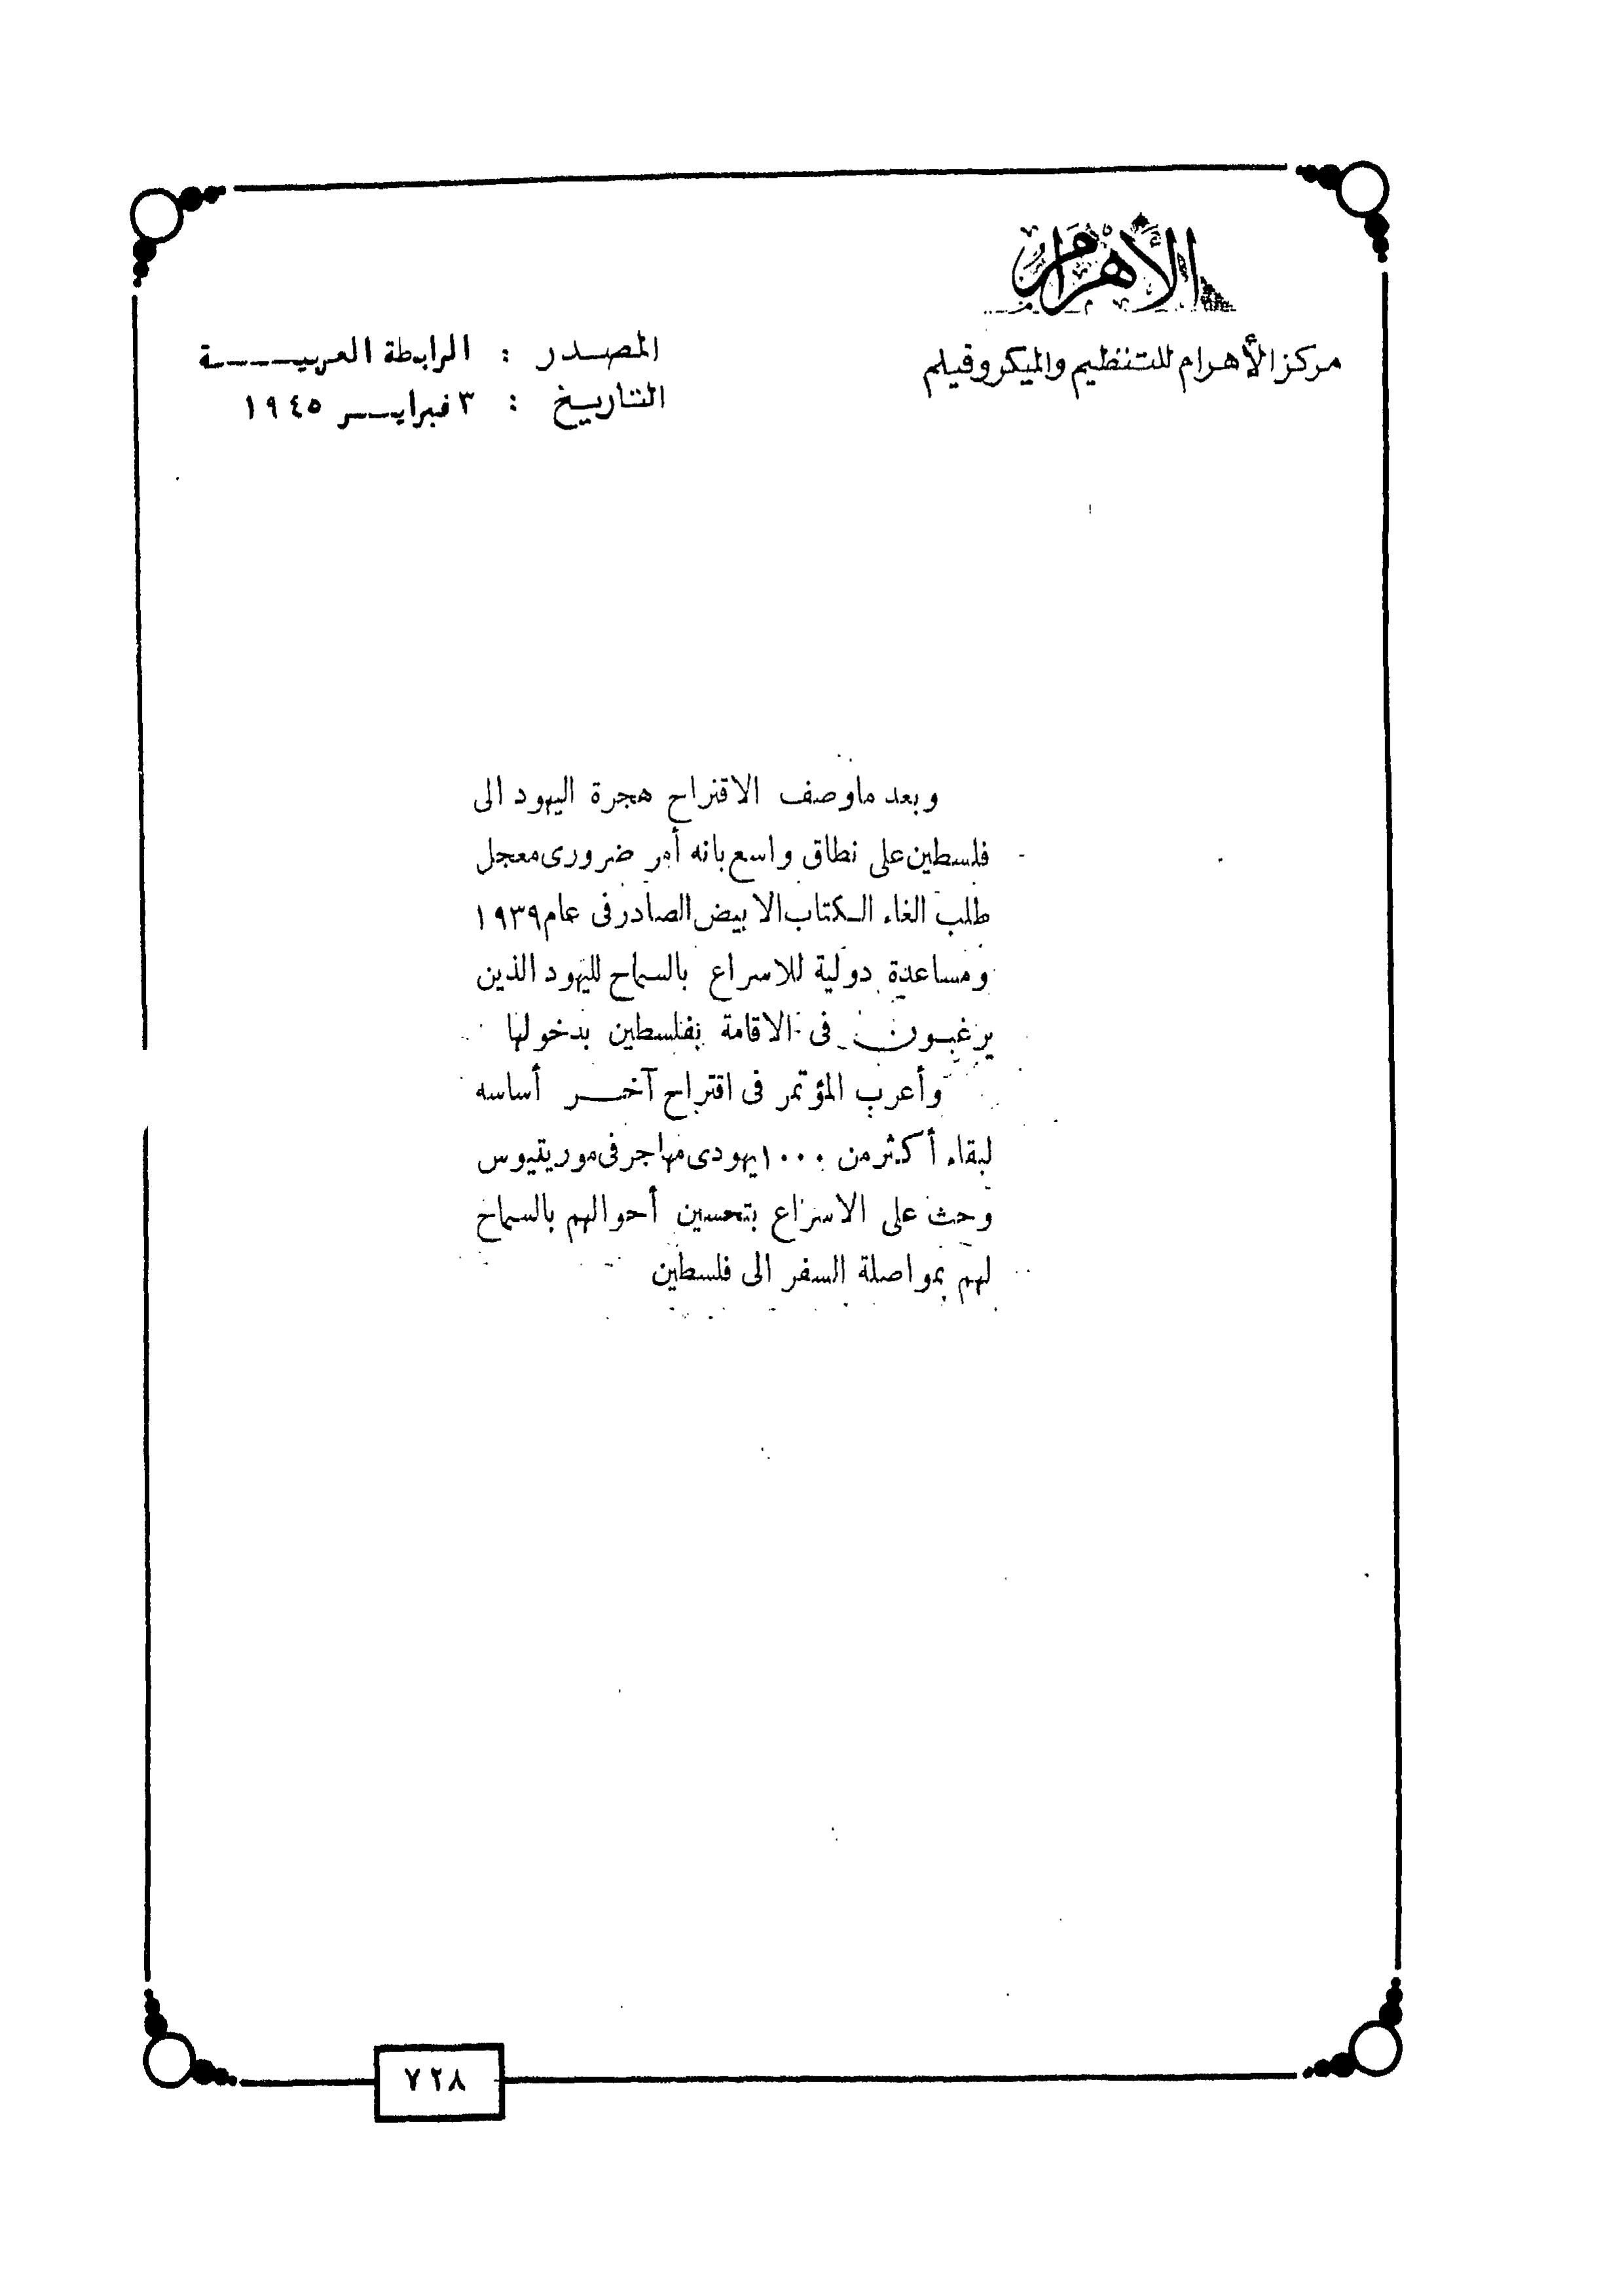 الأهرام
مركز الأهرام للتنظيم والميكروفيلم
المصدر : الرابطة العربية
التاريخ : ٣ فبراير ١٩٤٥
وبعد ما وصف الاقتراح هجرة اليهود الى
فلسطين على نطاق واسع بانه أمر ضرورى معجل
طلب الغاء الكتاب الابيض الصادر فى عام ١٩٣٩
ومساعدة دولية للاسراع بالسماح لليهود الذين
يرغبون فى الاقامة بفلسطين بدخولها
وأعرب المؤتمر فى اقتراح آخر أساسه
لبقاء أكثر من ١٠٠٠ يهودى مهاجر فى موريتيوس
وحث على الاسراع بتحسين أحوالهم بالسماح
لهم بمواصلة السفر الى فلسطين
٧٢٨